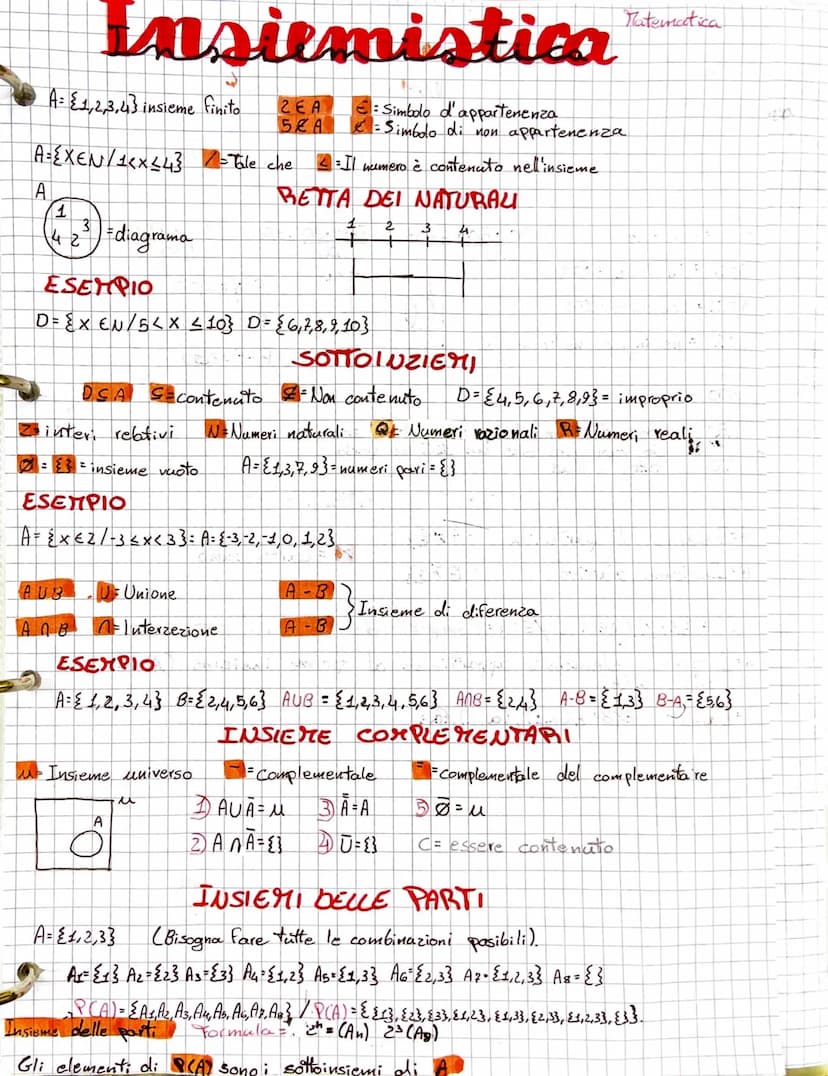 Insiemistica
Matematica
A={1,2,3,4} insieme finito 2 ∈ A ∈ = Simbolo d'appartenenza
5 ∉ A ∉ = Simbolo di non appartenenza
A={X∈N/1<x≤4} / = Tale che ≤ = Il numero è contenuto nell'insieme
RETTA DEI NATURALI
A
1 2 3 4
1 3 4 2 = diagrama
ESEMPIO
D={X ∈N/5<X ≤10} D={6,7,8,9,10}
SOTTOINZIEMI
D⊆A ⊆ = contenuto ⊈ = Non contenuto D={4,5,6,7,8,9} = improprio
Z = interi relativi N = Numeri naturali Q = Numeri razionali R = Numeri reali
Ø = {} = insieme vuoto A={1,3,7,9} = numeri pari = {}
ESEMPIO
A= {x∈Z/-3≤x<3} = A={-3,-2,-1,0,1,2}
A∪B ∪ = Unione A-B
Insieme di diferenza
A∩B ∩ = Interzezione A-B
ESEMPIO
A={1,2,3,4} B={2,4,5,6} A∪B = {1,2,3,4,5,6} A∩B={2,4} A-B={1,3} B-A={5,6}
INSIEME COMPLEMENTARI
μ = Insieme universo ‾ = complementale ‗ = complementale del complementare
μ
A
1) A∪Ā=μ 3) A̿=A 5) Ø̄=μ
2) A∩Ā={} 4) Ū={} C= essere contenuto
INSIEMI DELLE PARTI
A={1,2,3} (Bisogna fare tutte le combinazioni posibili).
A1={1} A2={2} A3={3} A4={1,2} A5={1,3} A6={2,3} A7={1,2,3} A8={}
P(A)={A1,A2,A3,A4,A5,A6,A7,A8} / P(A)={{1},{2},{3},{1,2},{1,3},{2,3},{1,2,3},{}}.
Insieme delle parti Formula = 2ⁿ=(An) 2³(A8)
Gli elementi di P(A) sono i sottoinsiemi di A